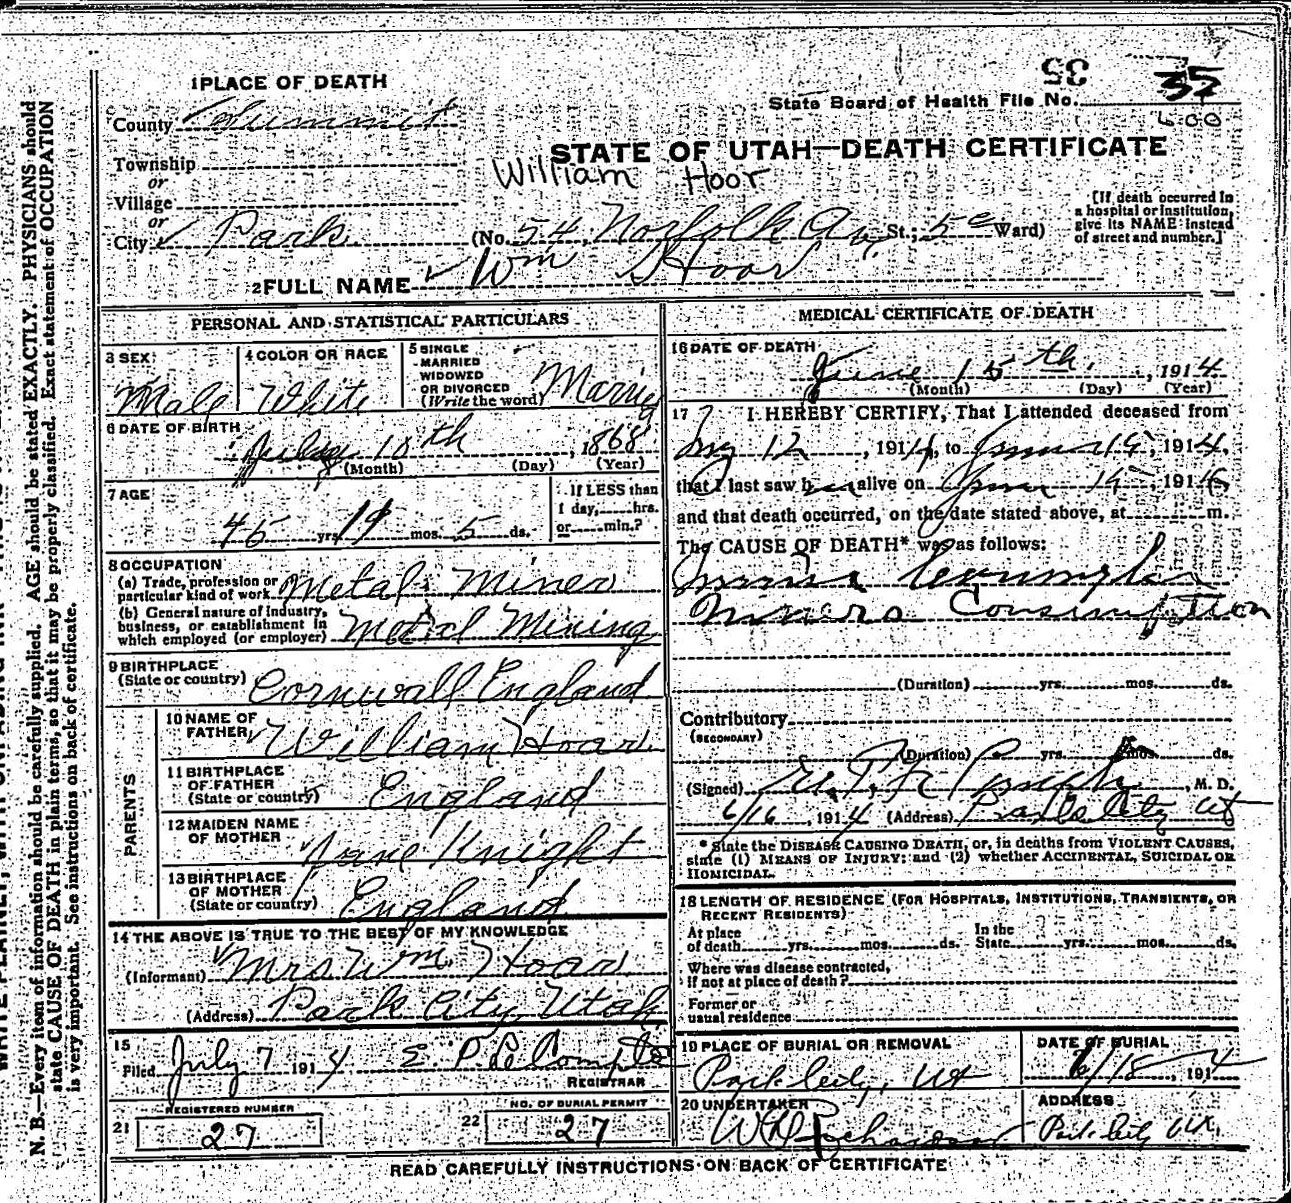 1 PLACE OF DEATH
35
35
State Board of Health File No.
600
County Summit
STATE OF UTAH—DEATH CERTIFICATE
Township
William Hoor
or
Village
or
City Park (No. 54, Norfolk Av. St.; 5e Ward)
[If death occurred in a hospital or institution, give its NAME instead of street and number.]
2 FULL NAME Wm Hoar
PERSONAL AND STATISTICAL PARTICULARS
3 SEX Male
4 COLOR OR RACE White
5 SINGLE
MARRIED
WIDOWED
OR DIVORCED
(Write the word)
6 DATE OF BIRTH
10th, 1868
(Month) (Day) (Year)
7 AGE
45 yrs. 11 mos. 5 ds.
If LESS than
1 day, hrs.
or min.?
8 OCCUPATION
(a) Trade, profession or
particular kind of work Metal Miner
(b) General nature of industry,
business, or establishment in
which employed (or employer) Metal Mining
9 BIRTHPLACE
(State or country) Cornwall England
PARENTS
10 NAME OF
FATHER William Hoar
11 BIRTHPLACE
OF FATHER
(State or country) England
12 MAIDEN NAME
OF MOTHER Jane Knight
13 BIRTHPLACE
OF MOTHER
(State or country) England
14 THE ABOVE IS TRUE TO THE BEST OF MY KNOWLEDGE
(Informant) Mrs Wm. Hoar
(Address) Park City, Utah
15
Filed July 7 1914 E. P. Le Compte
REGISTRAR
REGISTERED NUMBER
21 27
NO. OF BURIAL PERMIT
22 27
MEDICAL CERTIFICATE OF DEATH
16 DATE OF DEATH
June 15th, 1914
(Month) (Day) (Year)
17 I HEREBY CERTIFY, That I attended deceased from
12, 1914, to June 15, 1914,
that I last saw h alive on June 15, 191
and that death occurred, on the date stated above, at m.
The CAUSE OF DEATH* was as follows:
Miners Consumption
(Duration) yrs. mos. ds.
Contributory
(SECONDARY)
(Duration) yrs. mos. ds.
(Signed) , M. D.
6/16, 1914 (Address) Park City Ut
* State the DISEASE CAUSING DEATH, or, in deaths from VIOLENT CAUSES,
state (1) MEANS OF INJURY; and (2) whether ACCIDENTAL, SUICIDAL OR
HOMICIDAL.
18 LENGTH OF RESIDENCE (FOR HOSPITALS, INSTITUTIONS, TRANSIENTS, OR
RECENT RESIDENTS)
At place
of death yrs. mos. ds.
In the
State yrs. mos. ds.
Where was disease contracted,
if not at place of death?
Former or
usual residence
19 PLACE OF BURIAL OR REMOVAL
Park City, Ut
DATE OF BURIAL
6/18, 1914
20 UNDERTAKER
ADDRESS
Park City Ut.
READ CAREFULLY INSTRUCTIONS ON BACK OF CERTIFICATE
N. B.—Every item of information should be carefully supplied. AGE should be stated EXACTLY. PHYSICIANS should
state CAUSE OF DEATH in plain terms, so that it may be properly classified. Exact statement of OCCUPATION
is very important. See instructions on back of certificate.